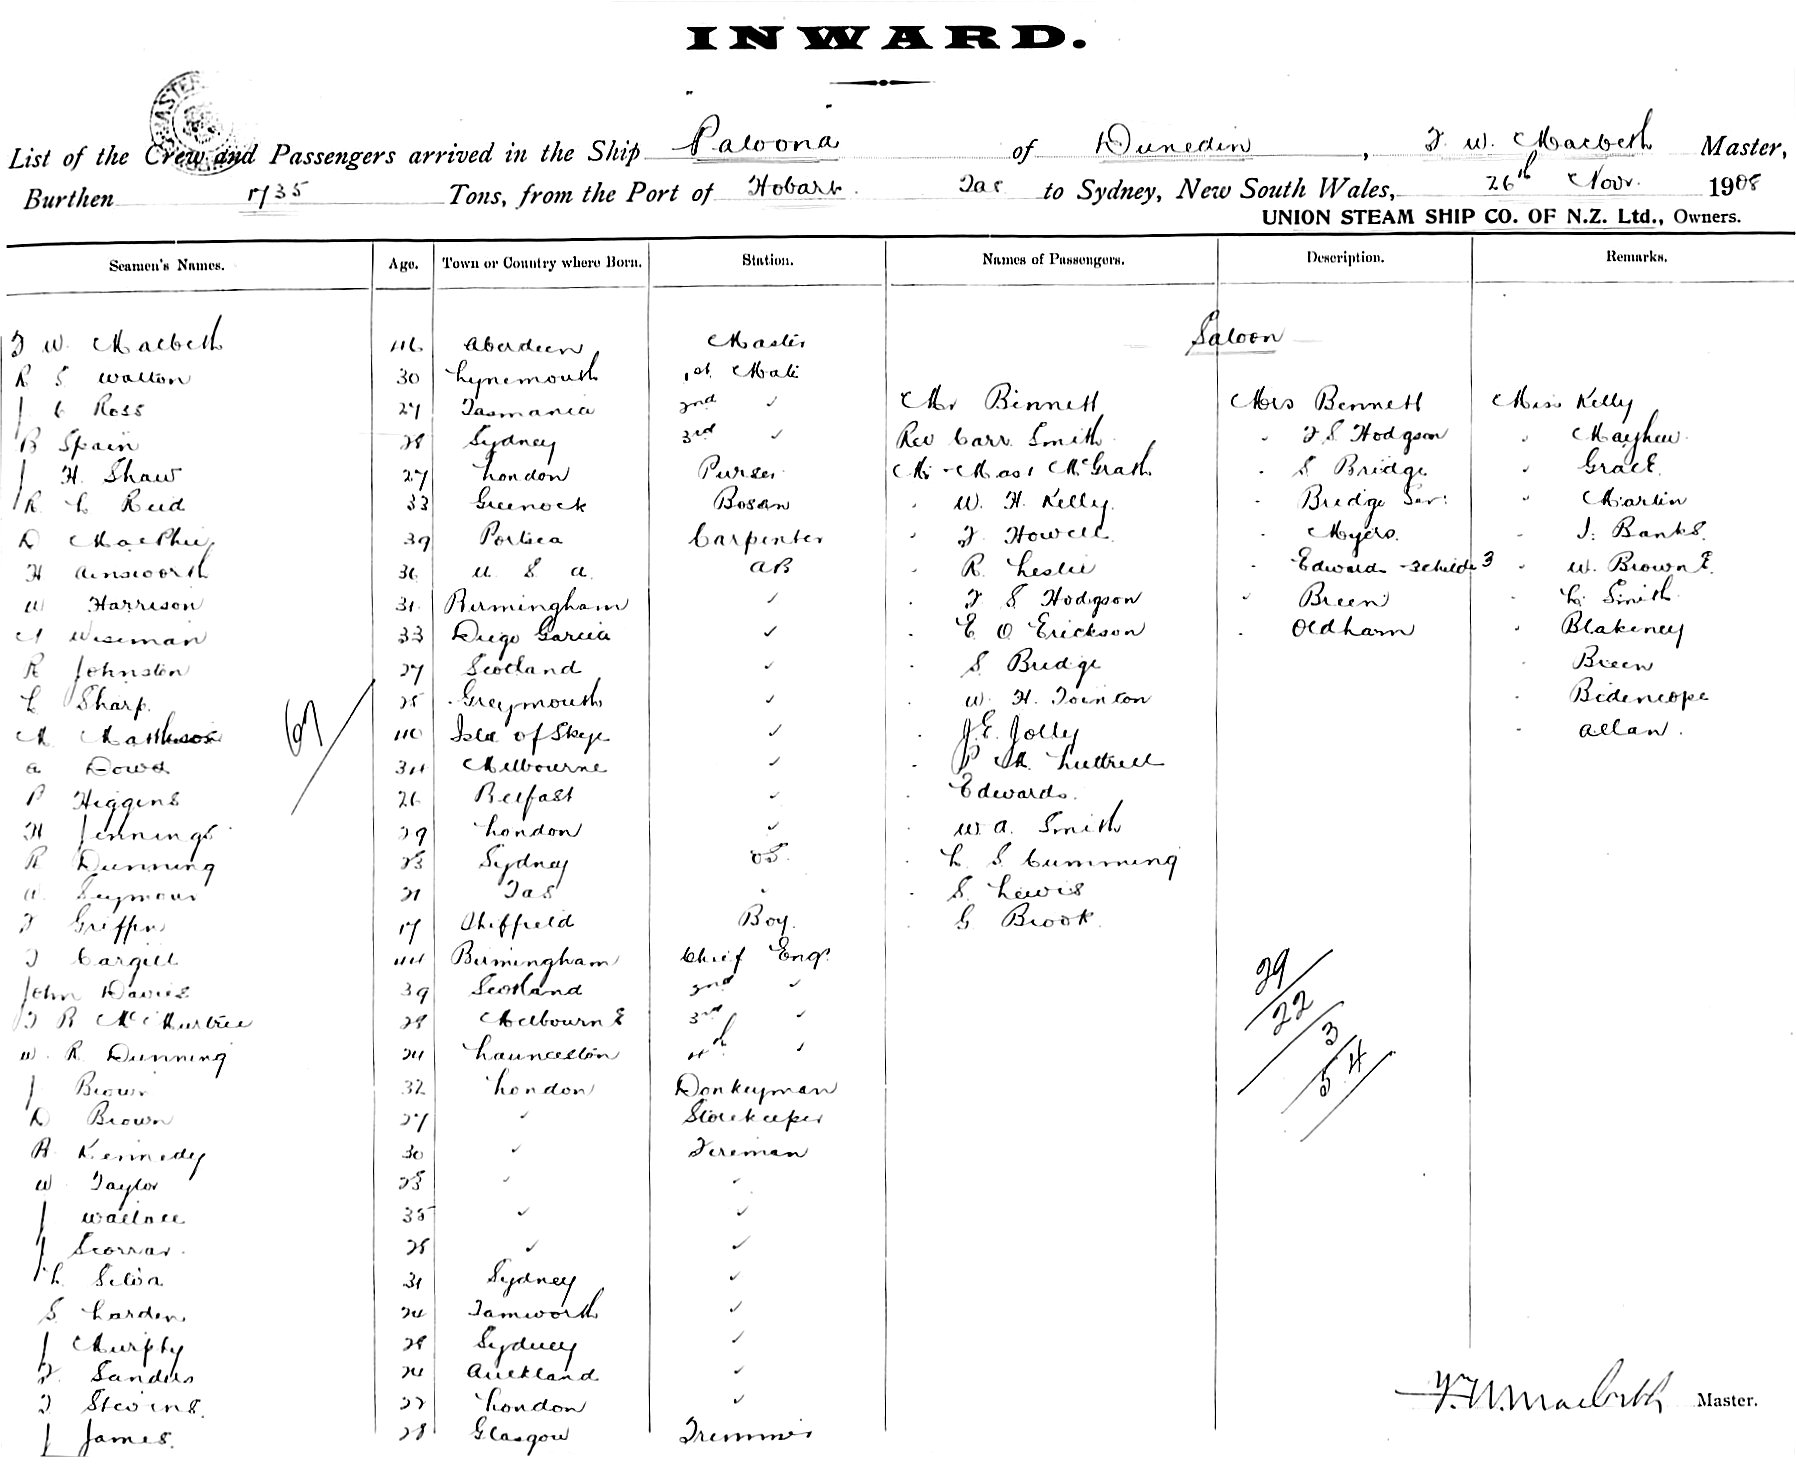 INWARD.
List of the Crew and Passengers arrived in the Ship Paloona of Dunedin, F. W. Macbeth Master,
Burthen 1735 Tons, from the Port of Hobart. Tas to Sydney, New South Wales, 26th Nov. 1908
UNION STEAM SHIP CO. OF N.Z. Ltd., Owners.
Seamen's Names. Age. Town or Country where Born. Station. Names of Passengers. Description. Remarks.
Saloon
F W Macbeth 46 Aberdeen Master
R S Walton 30 Lynemouth 1st Mate
J C Ross 27 Tasmania 2nd ✓ Mr Bennett Mrs Bennett Miss Kelly
B Spain 28 Sydney 3rd ✓ Rev Carr Smith " F S Hodgson " Mayhew
J H Shaw 27 London Purser Mr - Mast McGrath " S Bridge " Grace
R L Reid 33 Greenock Bosun " W. H. Kelly " Bridge Sen: " Martin
D MacPhie 39 Portsea Carpenter " F. Howell " Myers. " J. Banks.
H Ainsworth 36 U S A. AB " R. Leslie " Edwards 3 child 3 " W. Browne.
W Harrison 31 Birmingham ✓ " F S Hodgson " Breen " L. Smith
Wiseman 33 Diego Garcia ✓ " E O Erickson " Oldham " Blakeney
R Johnston 27 Scotland ✓ " S Bridge " Breen
L Sharp. 25 Greymouth ✓ " W. H. Tointon " Bidencope
M Mathieson 40 Isle of Skye ✓ " J. E. Jolly " Allan.
A Dowd 34 Melbourne ✓ " P Luttrell
P Higgins 26 Belfast ✓ " Edwards.
H Jennings 29 London ✓ W. A. Smith
R Dunning 23 Sydney OS. " L S Cumming
W Seymour 21 Tas " " S. Lewis
F Griffin 17 Sheffield Boy. " G Brook.
J Cargill 44 Birmingham Chief Engr.
John Davies 39 Scotland 2nd ✓
F R McMurtrie 28 Melbourne 3rd ✓
W. R. Dunning 24 Launceston 4th ✓
J Brown 32 London Donkeyman
D Brown 27 ✓ Storekeeper
Kennedy 30 ✓ Fireman
W Taylor 23 ✓ ✓
J Wallace 35 ✓ ✓
J 25 ✓ ✓
L Silva 31 Sydney ✓
S. Larden 24 Tamworth ✓
J Murphy 28 Sydney ✓
F. Sanders 24 Auckland ✓
F Stevens. 22 London ✓
J James. 28 Glasgow Trimmer
29
22
3
54
F. W. Macbeth Master.